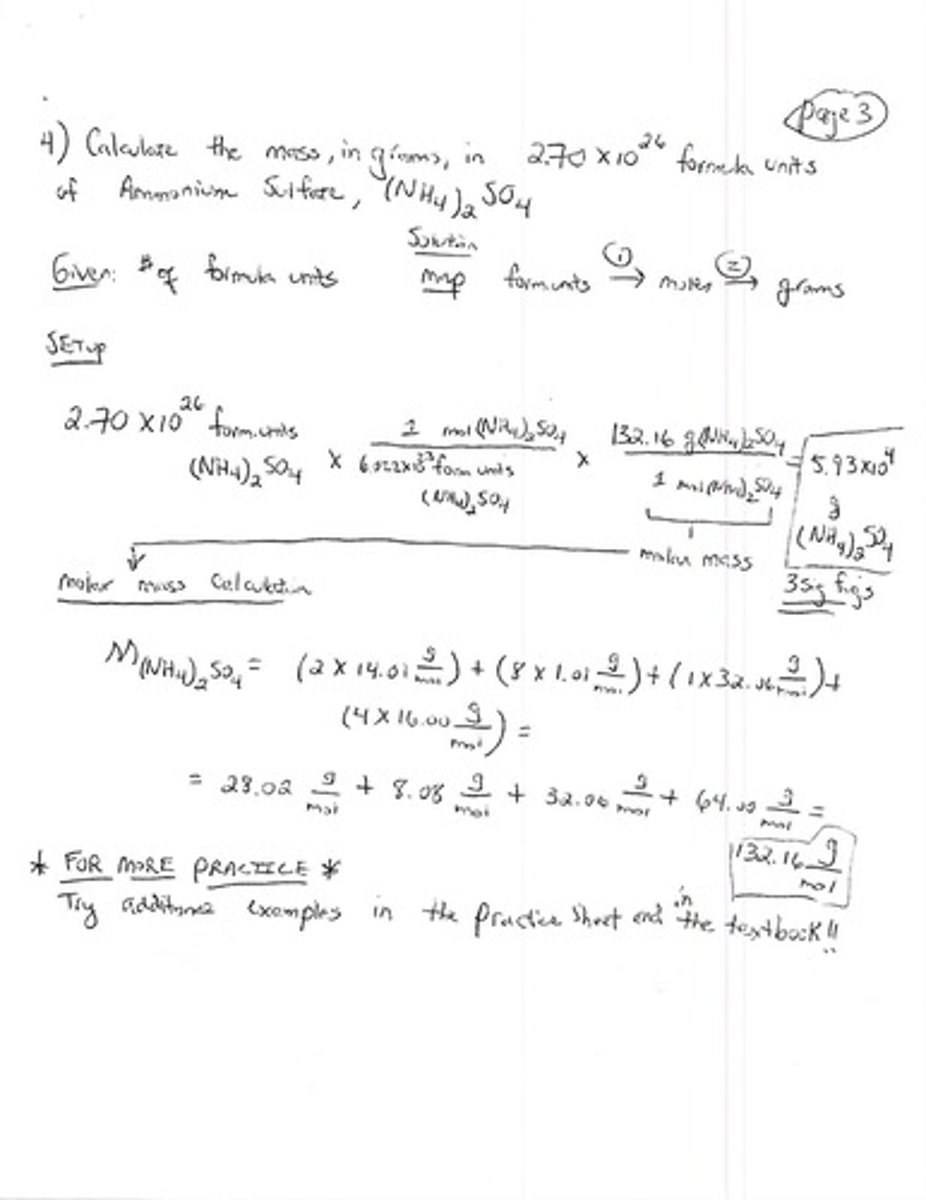 page 3
4) Calculate the mass, in grams, in 2.70 × 10²⁶ formula units
of Ammonium Sulfate, (NH₄)₂SO₄
Given: # of formula units Solution map form.units ①→ moles ②→ grams
SETUP
2.70 × 10²⁶ form.units (NH₄)₂SO₄ × 1 mol (NH₄)₂SO₄ / 6.022×10²³ form units (NH₄)₂SO₄ × 132.16 g (NH₄)₂SO₄ / 1 mol (NH₄)₂SO₄ = 5.93×10⁴ g (NH₄)₂SO₄
molar mass
3 sig figs
molar mass Calculation
M(NH₄)₂SO₄ = (2 × 14.01 g/mol) + (8 × 1.01 g/mol) + (1 × 32.06 g/mol) +
(4 × 16.00 g/mol) =
= 28.02 g/mol + 8.08 g/mol + 32.06 g/mol + 64.00 g/mol =
132.16 g/mol
* FOR MORE PRACTICE *
Try examples in the practice sheet and in the textbook!!